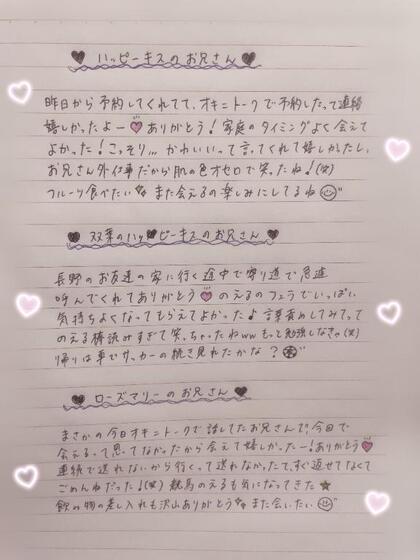 ハッピーキスのお兄さん
昨日から予約してくれてて、オキニトークで予約したって連絡
嬉しかったよー ありがとう！家庭のタイミングよく会えて
よかった！こっそり... かわいいって言ってくれて嬉しかったし、
お兄さん外仕事だから肌の色オセロで笑ったね！(笑)
フルーツ食べたい また会えるの楽しみにしてるね
双葉のハッピーキスのお兄さん
長野のお友達の家に行く途中で寄り道で急遽
呼んでくれてありがとう のえるのフェラでいっぱい
気持ちよくなってもらえてよかった♪ 言葉責めしてみてって
のえる棒読みすぎて笑っちゃったねww もっと勉強しなきゃ(笑)
帰りは車でサッカーの続き見れたかな？
ローズマリーのお兄さん
まさかの今日オキニトークで話してたお兄さんで！今日で
会えるって思ってなかったから会えて嬉しかったー！ありがとう
連続で送れないから行くって送れなかったて、すぐ返せてなくて
ごめんねだった！(笑) 競馬のえるも気になってきた
飲み物の差し入れも沢山ありがとう また会いたい